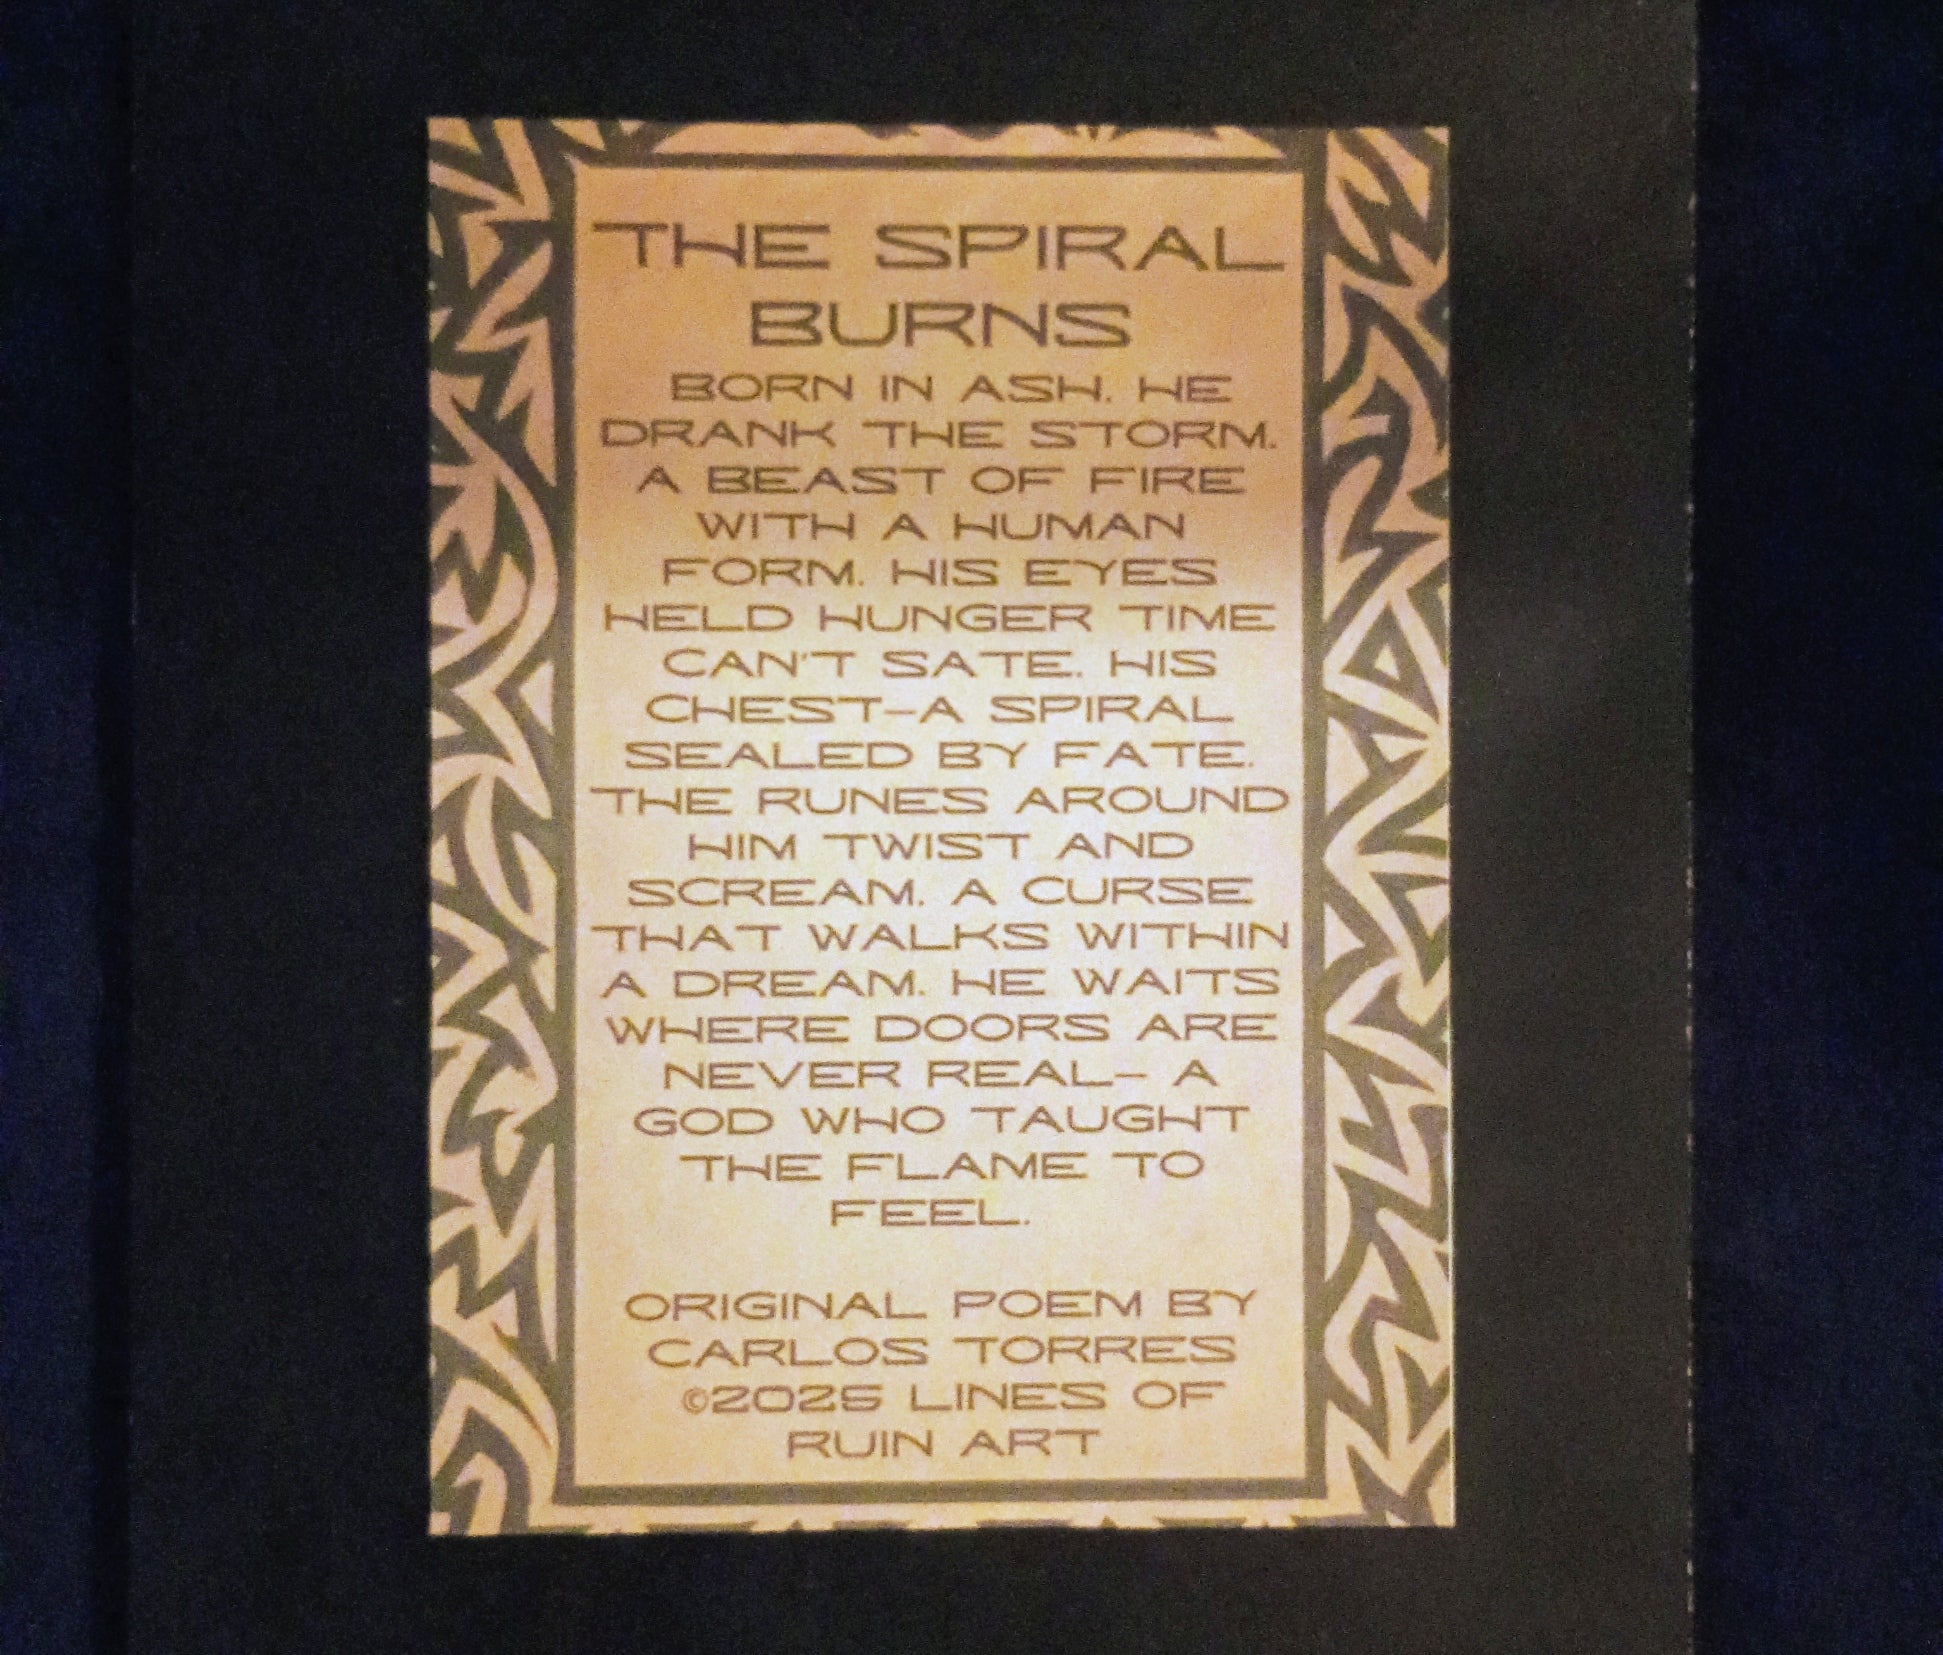 THE SPIRAL
BURNS
BORN IN ASH. HE
DRANK THE STORM.
A BEAST OF FIRE
WITH A HUMAN
FORM. HIS EYES
HELD HUNGER TIME
CAN'T SATE. HIS
CHEST-A SPIRAL
SEALED BY FATE.
THE RUNES AROUND
HIM TWIST AND
SCREAM. A CURSE
THAT WALKS WITHIN
A DREAM. HE WAITS
WHERE DOORS ARE
NEVER REAL- A
GOD WHO TAUGHT
THE FLAME TO
FEEL.
ORIGINAL POEM BY
CARLOS TORRES
©2025 LINES OF
RUIN ART